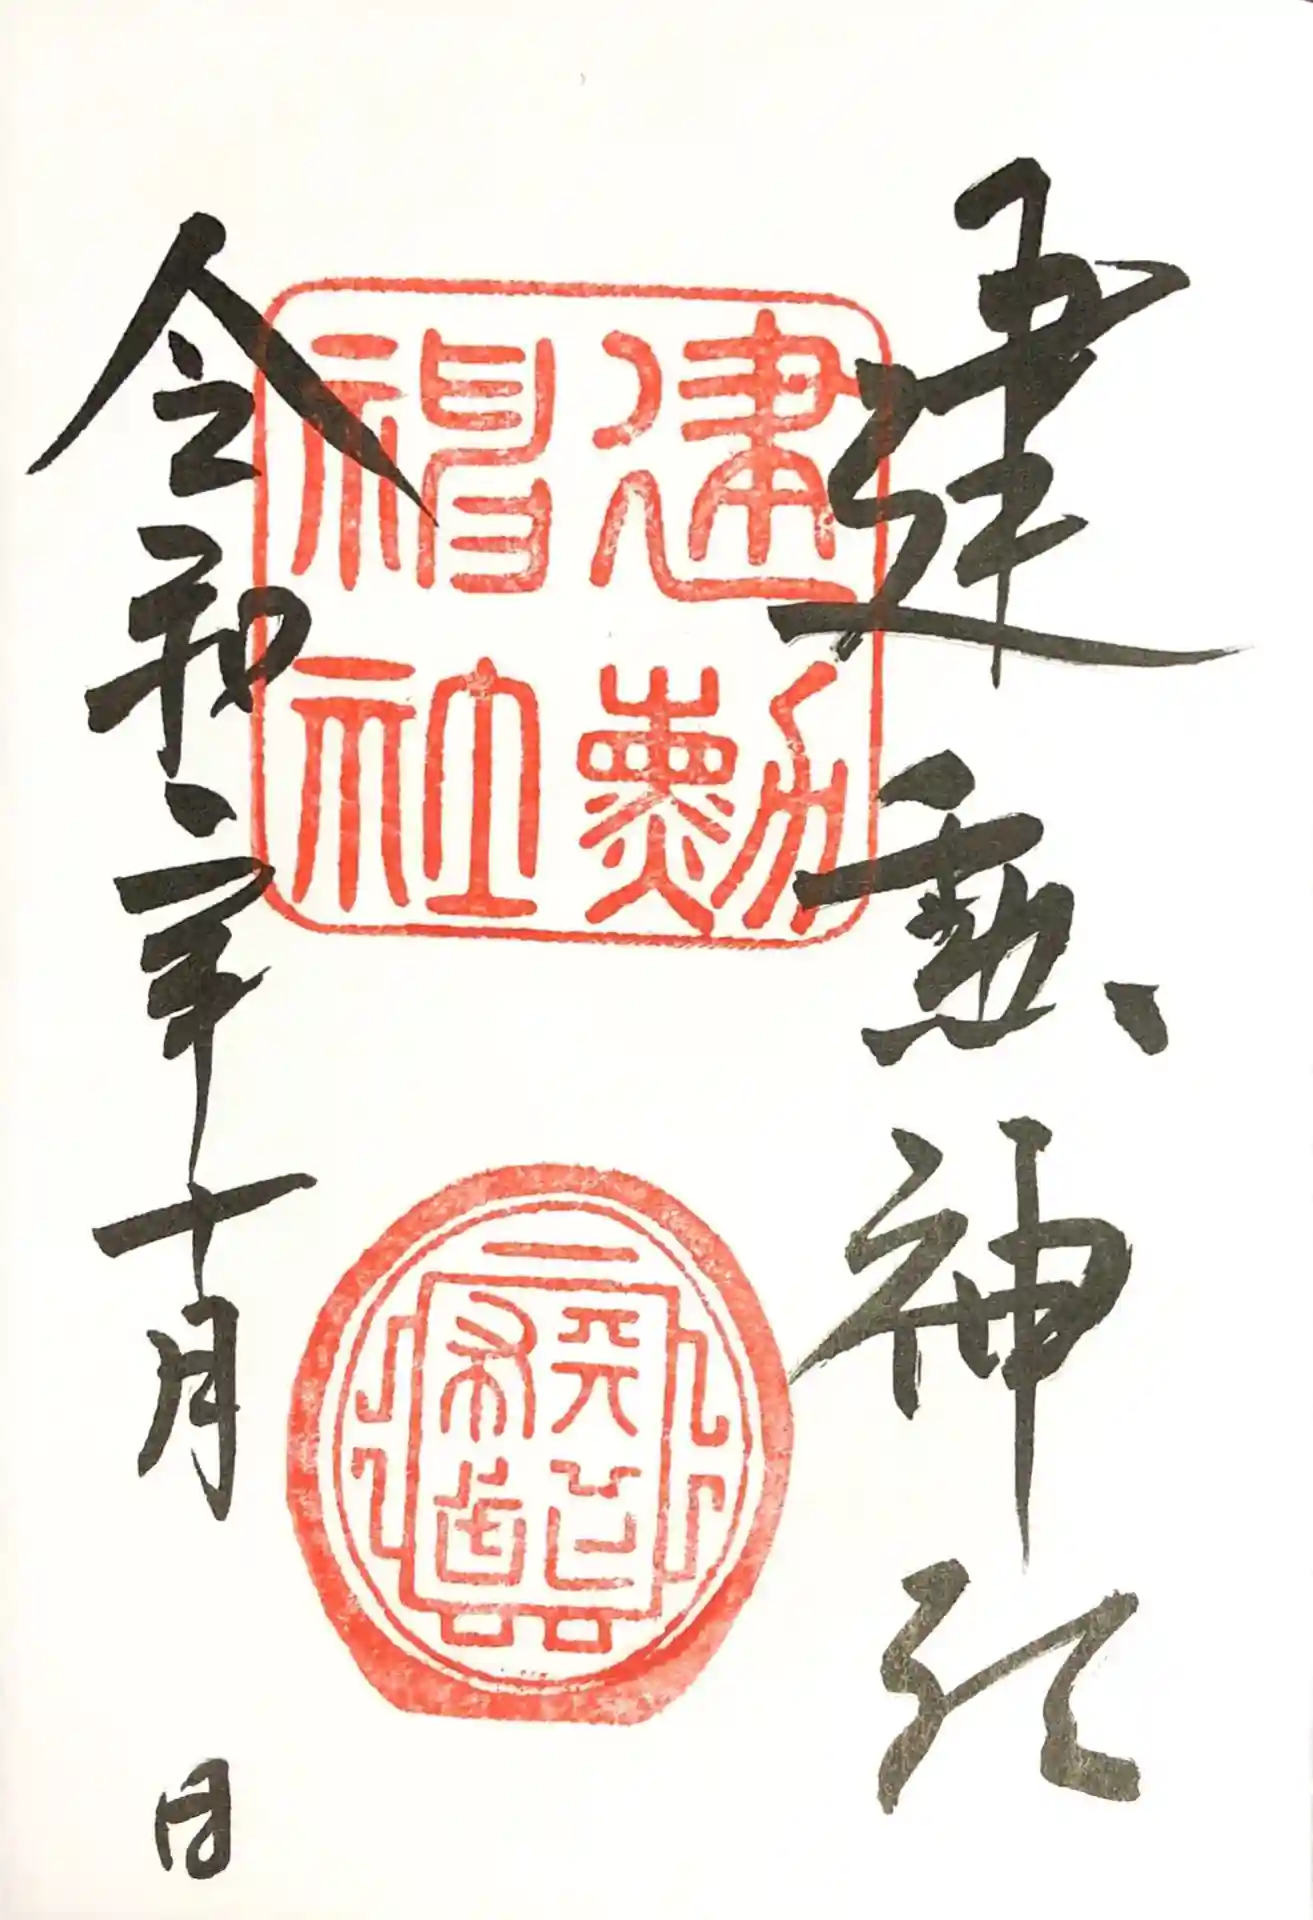 建勲神社
建勲
神社
令和六年十月 日